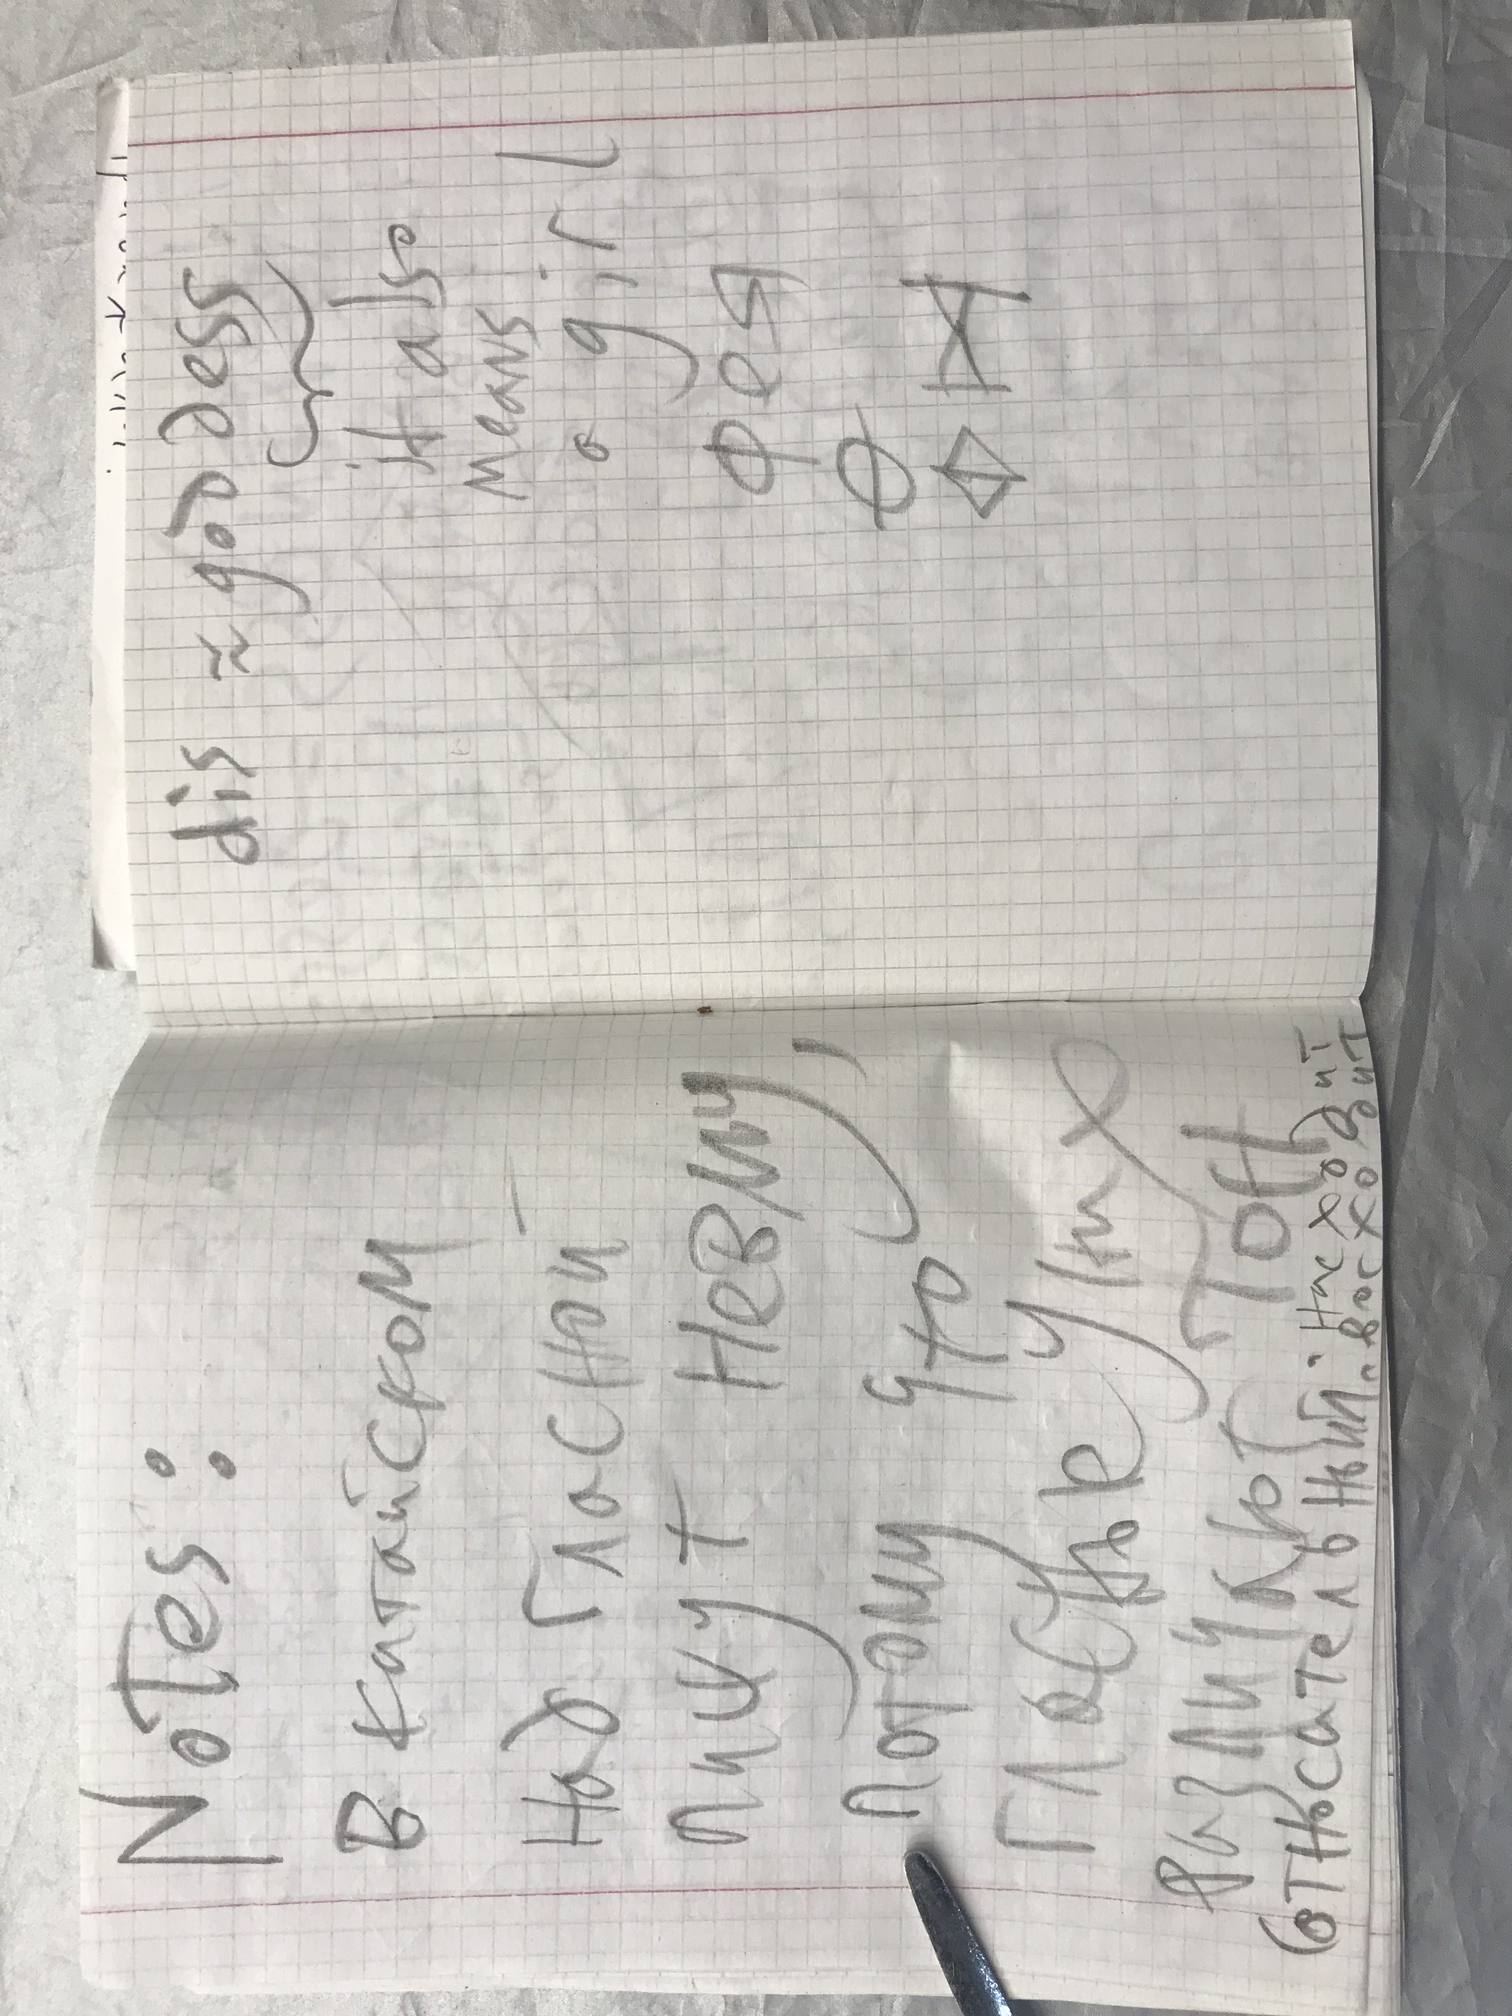 Notes:
В китайском
над гласной
пишут невму,
потому что
гласные у них
различают тон
(относительный: нисходит
восходит
dis ≈ goddess
it also
means
a girl
фея
Ф